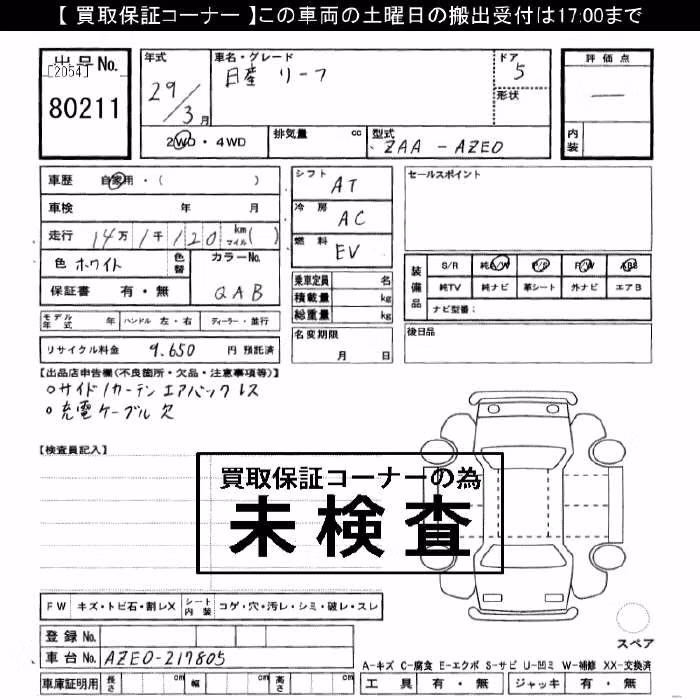 【 買取保証コーナー 】この車両の土曜日の搬出受付は17:00まで
出品No.
[2054]
80211
年式
29/3月
車名・グレード
日産 リーフ
ドア
5
形状
評価点
—
内装
2WD・4WD
排気量 cc
型式
ZAA-AZE0
車歴 自家用・( )
車検 年 月
走行 14万1千120 km マイル( )
色 ホワイト
色替
カラーNo.
QAB
保証書 有・無
シフト AT
冷房 AC
燃料 EV
乗車定員 名
積載量 kg
総重量 kg
セールスポイント
装備品
S/R 純A/W P/S P/W ABS
純TV 純ナビ 革シート 外ナビ エアB
ナビ型番:
モデル年式 年 ハンドル 左・右 ディーラー・並行
名変期限
月 日
後日品
リサイクル料金 9,650 円 預託済
【出品店申告欄(不良箇所・欠品・注意事項等)】
○サイド/カーテンエアバックレス
○充電ケーブル欠
【検査員記入】
買取保証コーナーの為
未検査
FW キズ・トビ石・割レX シート内装 コゲ・穴・汚レ・シミ・破レ・スレ
スペア
登録No.
車台No. AZE0-217805
A-キズ C-腐食 E-エクボ S-サビ U-凹ミ W-補修 XX-交換済
車庫証明用 長さ cm 幅 cm 高さ cm
工具 有・無 ジャッキ 有・無